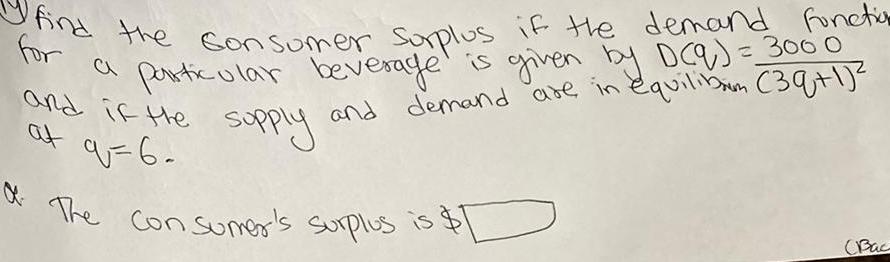 find the consumer surplus if the demand function
for a particular beverage is given by D(q) = 3000/(3q+1)²
and if the supply and demand are in equilibrium
at q=6.
a. The consumer's surplus is $
(Bac